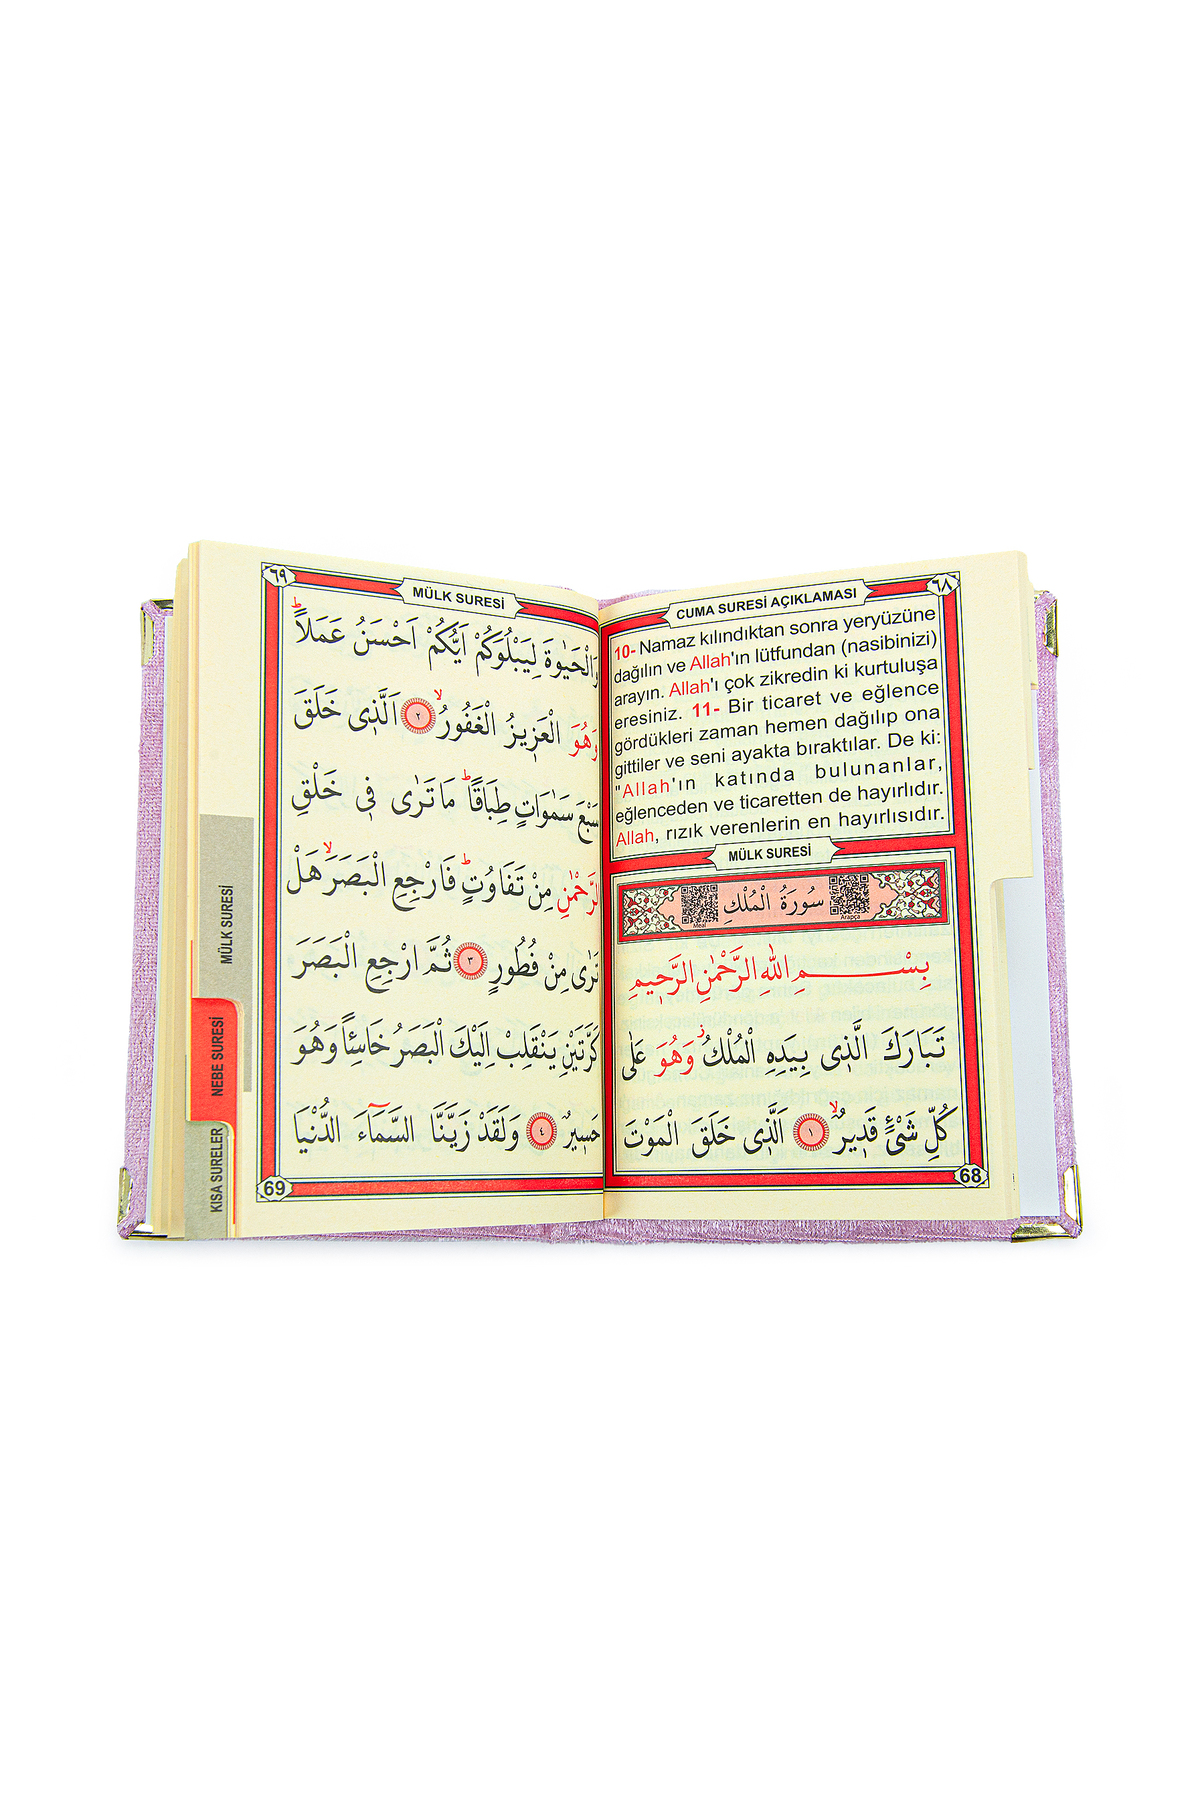 ٦٨
CUMA SURESİ AÇIKLAMASI
10- Namaz kılındıktan sonra yeryüzüne
dağılın ve Allah'ın lütfundan (nasibinizi)
arayın. Allah'ı çok zikredin ki kurtuluşa
eresiniz. 11- Bir ticaret ve eğlence
gördükleri zaman hemen dağılıp ona
gittiler ve seni ayakta bıraktılar. De ki:
"Allah'ın katında bulunanlar,
eğlenceden ve ticaretten de hayırlıdır.
Allah, rızık verenlerin en hayırlısıdır.
MÜLK SURESİ
سُورَةُ الْمُلْكِ
Arapça
Meal
بِسْمِ اللهِ الرَّحْمٰنِ الرَّح۪يمِ
تَبَارَكَ الَّذ۪ى بِيَدِهِ الْمُلْكُۘ وَهُوَ عَلٰى
كُلِّ شَىْءٍ قَد۪يرٌۙ ﴿١﴾ اَلَّذ۪ى خَلَقَ الْمَوْتَ
68
٦٩
MÜLK SURESİ
وَالْحَيٰوةَ لِيَبْلُوَكُمْ اَيُّكُمْ اَحْسَنُ عَمَلًاۜ
وَهُوَ الْعَز۪يزُ الْغَفُورُۙ ﴿٢﴾ اَلَّذ۪ى خَلَقَ
سَبْعَ سَمٰوَاتٍ طِبَاقًاۜ مَا تَرٰى ف۪ى خَلْقِ
الرَّحْمٰنِ مِنْ تَفَاوُتٍۜ فَارْجِعِ الْبَصَرَۙ هَلْ
تَرٰى مِنْ فُطُورٍ ﴿٣﴾ ثُمَّ ارْجِعِ الْبَصَرَ
كَرَّتَيْنِ يَنْقَلِبْ اِلَيْكَ الْبَصَرُ خَاسِئًا وَهُوَ
حَس۪يرٌ ﴿٤﴾ وَلَقَدْ زَيَّنَّا السَّمَٓاءَ الدُّنْيَا
69
MÜLK SURESİ
NEBE SURESİ
KISA SURELER